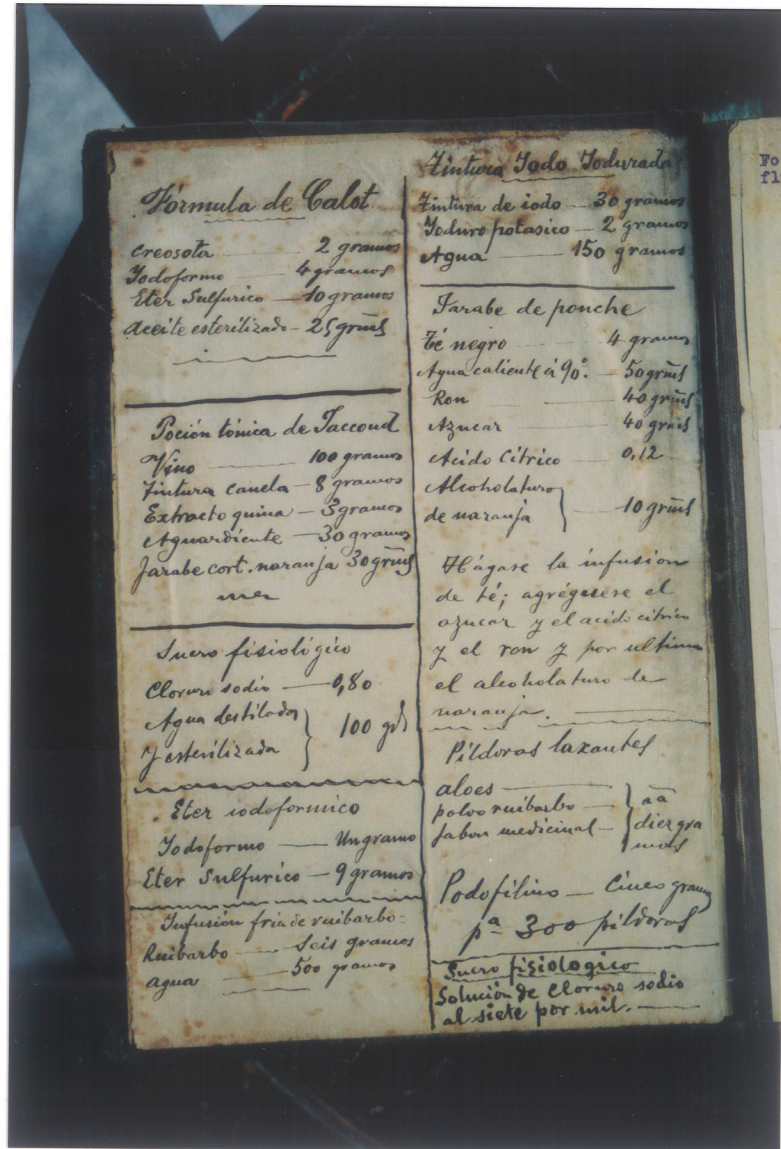 Fórmula de Calot
Creosota 2 gramos
Yodoformo 4 gramos
Eter Sulfurico 10 gramos
Aceite esterilizado 25 grms
Poción tónica de Jaccoud
Vino 100 gramos
Tintura canela 8 gramos
Extracto quina 3 gramos
Aguardiente 30 gramos
Jarabe cort. naranja 30 grms
Suero fisiológico
Cloruro sodio 0,80
Agua destilada
y esterilizada } 100 grs
Eter iodoformico
Yodoformo Un gramo
Eter Sulfurico 9 gramos
Infusión fria de ruibarbo
Ruibarbo Seis gramos
agua 500 gramos
Tintura Iodo Iodurada
Tintura de iodo 30 gramos
Ioduro potasico 2 gramos
Agua 150 gramos
Jarabe de ponche
Té negro 4 gramos
Agua caliente á 90º. 50 grms
Ron 40 grms
Azucar 40 grms
Acido Citrico 0,12
Alcoholaturo
de naranja } 10 grms
Hágase la infusion
de té; agréguese el
azucar y el acido citrico
y el ron y por ultimo
el alcoholaturo de
naranja.
Píldoras laxantes
aloes
polvo ruibarbo } aā
Jabon medicinal diez gra
mos
Podofilino Cinco gramos
pª 300 píldoras
Suero fisiologico
Solución de Cloruro sodio
al siete por mil.
Fo
fl